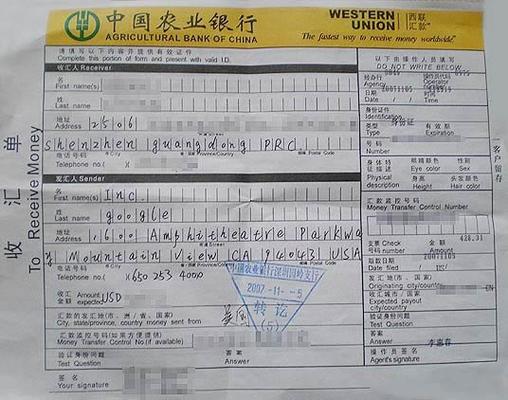 中国农业银行
AGRICULTURAL BANK OF CHINA
WESTERN UNION 西联汇款
The fastest way to receive money worldwide
请填写以下内容并提供有效证件
Complete this portion of form and present with valid ID.
以下由操作人员填写
DO NOT WRITE BELOW
收汇单
To Receive Money
客户留存
收汇人 Receiver
名
First name(s)
姓
Last name
地址
Address
2506
shenzhen guangdong PRC
电话号码
Telephone no.
发汇人 Sender
名
First name(s)
Inc
姓
Last name
google
地址
Address
1600 Amphitheatre Parkwa
y Mountain View CA 94043 USA
电话号码
Telephone no.
650 253 4000
收汇 金额
Amount expected
USD
汇款的发汇地(市、洲/省、国家)
City, state/province, country money sent from
美国
汇款监控号码(如果方便提供)
Money Transfer Control No.(if available)
验证身份问题
Test Question
答案
Answer
签名
Your signature
中国农业银行深圳国岭支行
2007-11--5
转讫
(5)
经办行
Agency
操作员代号
Operator
日期
Date
20071105
时间
Time
身份证件
Identification
类型
Type
身份证
有效
Expiration
号码
Number
身体特征
Physical description
眼睛颜色
Eye color
性别
Sex
身高
Height
头发颜色
Hair color
汇款监控号码
Money Transfer Control Number
支票 Check
号码 number
金额
Amount
628.31
日期
Date filed
20071105
发汇地(市、国家)
Originating city/country
收汇城市/国家
Expected payout city/country
验证身份问题
Test Question
答案
Answer
李惠春
操作员签名
Agent's signature